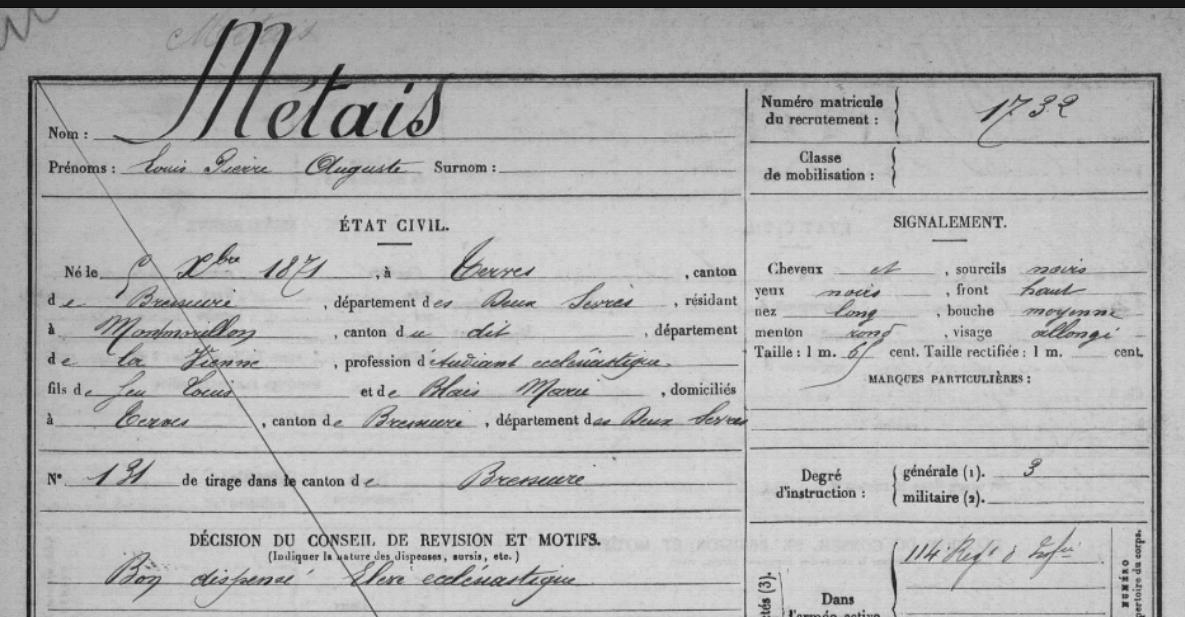 Métais
Nom : Métais
Prénoms : Louis Pierre Auguste Surnom :
ÉTAT CIVIL.
Né le 5 Xbre 1871, à Terves, canton
de Bressuire, département des Deux Sèvres, résidant
à Montmorillon, canton du dit, département
de la Vienne, profession d'étudiant ecclésiastique,
fils de feu Louis et de Blais Marie, domiciliés
à Terves, canton de Bressuire, département des Deux Sèvres
N° 131 de tirage dans le canton de Bressuire
DÉCISION DU CONSEIL DE REVISION ET MOTIFS.
(Indiquer la nature des dispenses, sursis, etc.)
Bon dispensé Elève ecclésiastique
Numéro matricule du recrutement : 1732
Classe de mobilisation :
SIGNALEMENT.
Cheveux et, sourcils noirs
yeux noirs, front haut
nez long, bouche moyenne
menton rond, visage allongé
Taille : 1 m. cent. Taille rectifiée : 1 m. cent.
MARQUES PARTICULIÈRES :
Degré d'instruction : générale (1). 3
militaire (2).
114 Regt d'Infie
Dans
l'armée active
NUMÉRO
répertoire du corps.